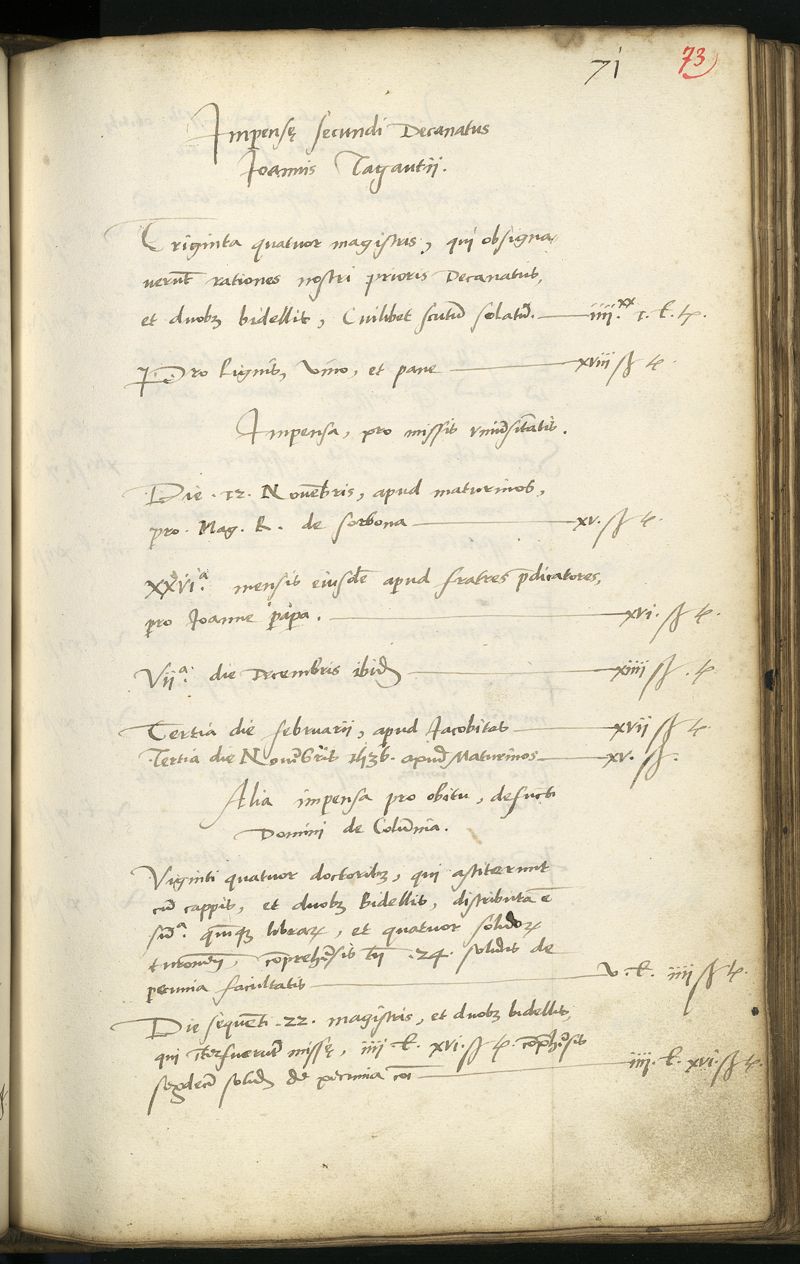 71 73
Impensę secundi Decanatus
Joannis Tagautii.
Triginta quatuor magistris, qui obsigna-
verūt rationes nostri prioris Decanatus,
et duobȝ bidellis, Cuilibet scutū solatū. iiii.xx i. l. tꝭ.
Pro lignis, vino, et pane xviii ß tꝭ.
Impensa, pro missis vniūsitatis.
Die .12. Novēbris, apud maturinos,
pro Mag. R. de sorbona xv. ß tꝭ.
XXVIa. mensis eiusdē apud fratres p̄dicatores,
pro Joanne papa. xvi. ß tꝭ.
Viia. die Decembris ibid̄ xiiii ß. tꝭ
Tertia die februarii, apud Jacobitas xvii ß tꝭ.
Tertia die Novēbris 1536. apud Maturinos xv. ß.
Alia impensa pro obitu, defucti
Domini de Colūnia.
Viginti quatuor doctoribȝ, qui astiterunt
cū cappis, et duobȝ Bidellis, distributa ē
sūa. quīqȝ librarꝝ, et quatuor solidoꝝ
turoneñ, cōprehēsis .24. solidis de
pecunia facultatis v. l. iiii ß tꝭ.
Die sequēti .22. magistris, et duobȝ bidellis,
qui īterfuerūt missę, iiii l. xvi. ß tꝭ. cōphēsis
sexdecī solid̄ de pecunia cōi iiii. l. xvi. ß tꝭ.